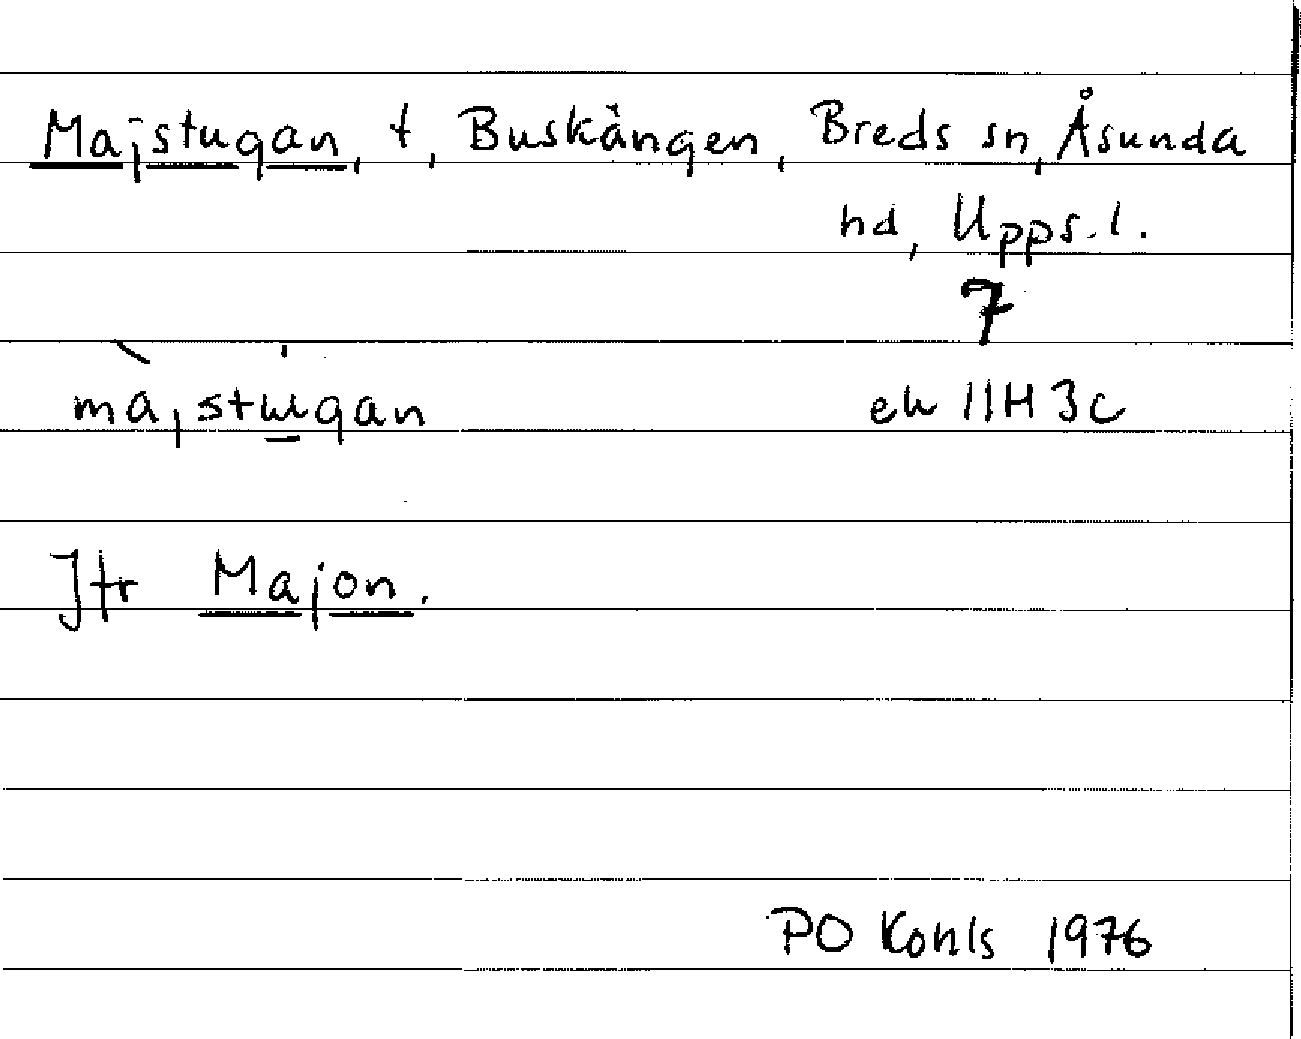 Majstugan, t, Buskängen, Breds sn, Åsunda
hd, Upps. l.
7
màjstu̲gan ek 11H 3c
Jfr Majon.
PO Kohls 1976